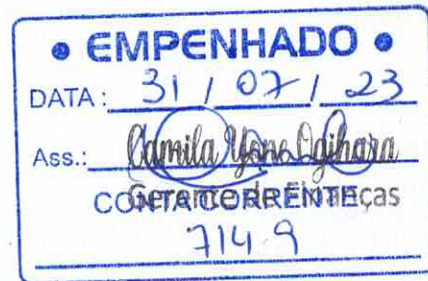 • EMPENHADO •
DATA: 31 / 07 / 23
Ass.: Camila Yono Ogihara
Gerente de Finanças
CONTA CORRENTE:
714-9